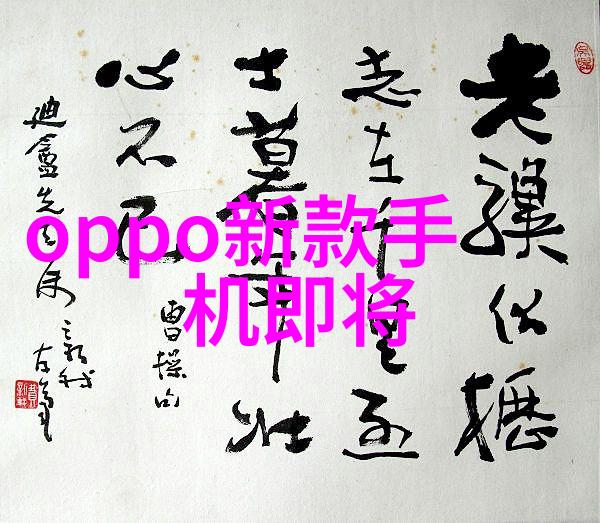 老驥伏櫪
志在千里烈
士暮年壮
心不已
曹操句
迪盦先生属
oppo新款手
机即将